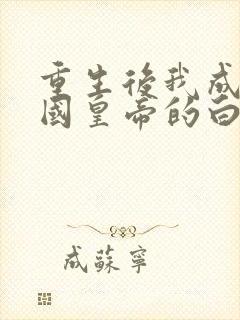 重生後我成
國皇帝的白
成蘇寧